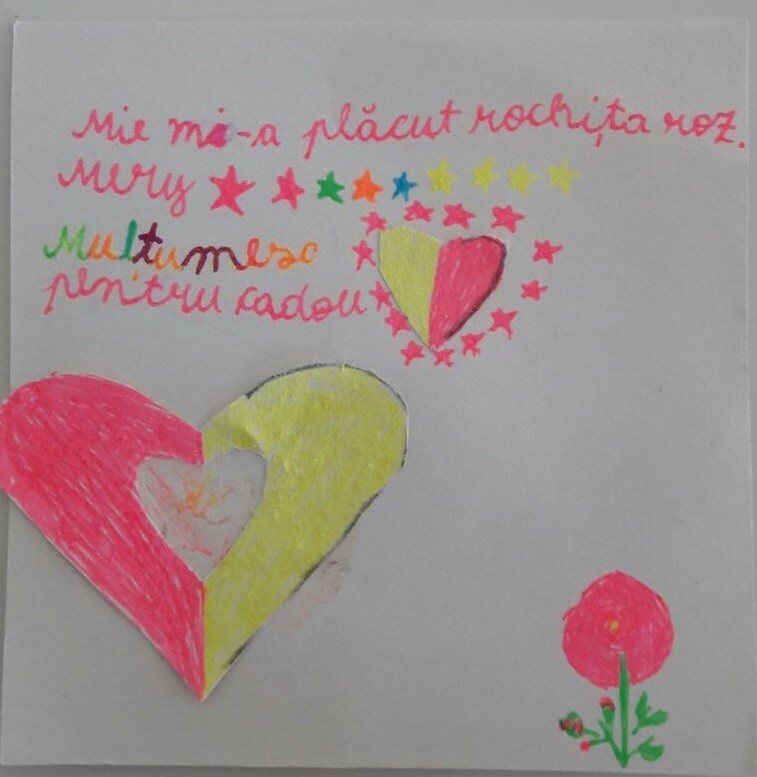 Mie mi-a plăcut rochița roz.
Mery
Multumesc
pentru cadou